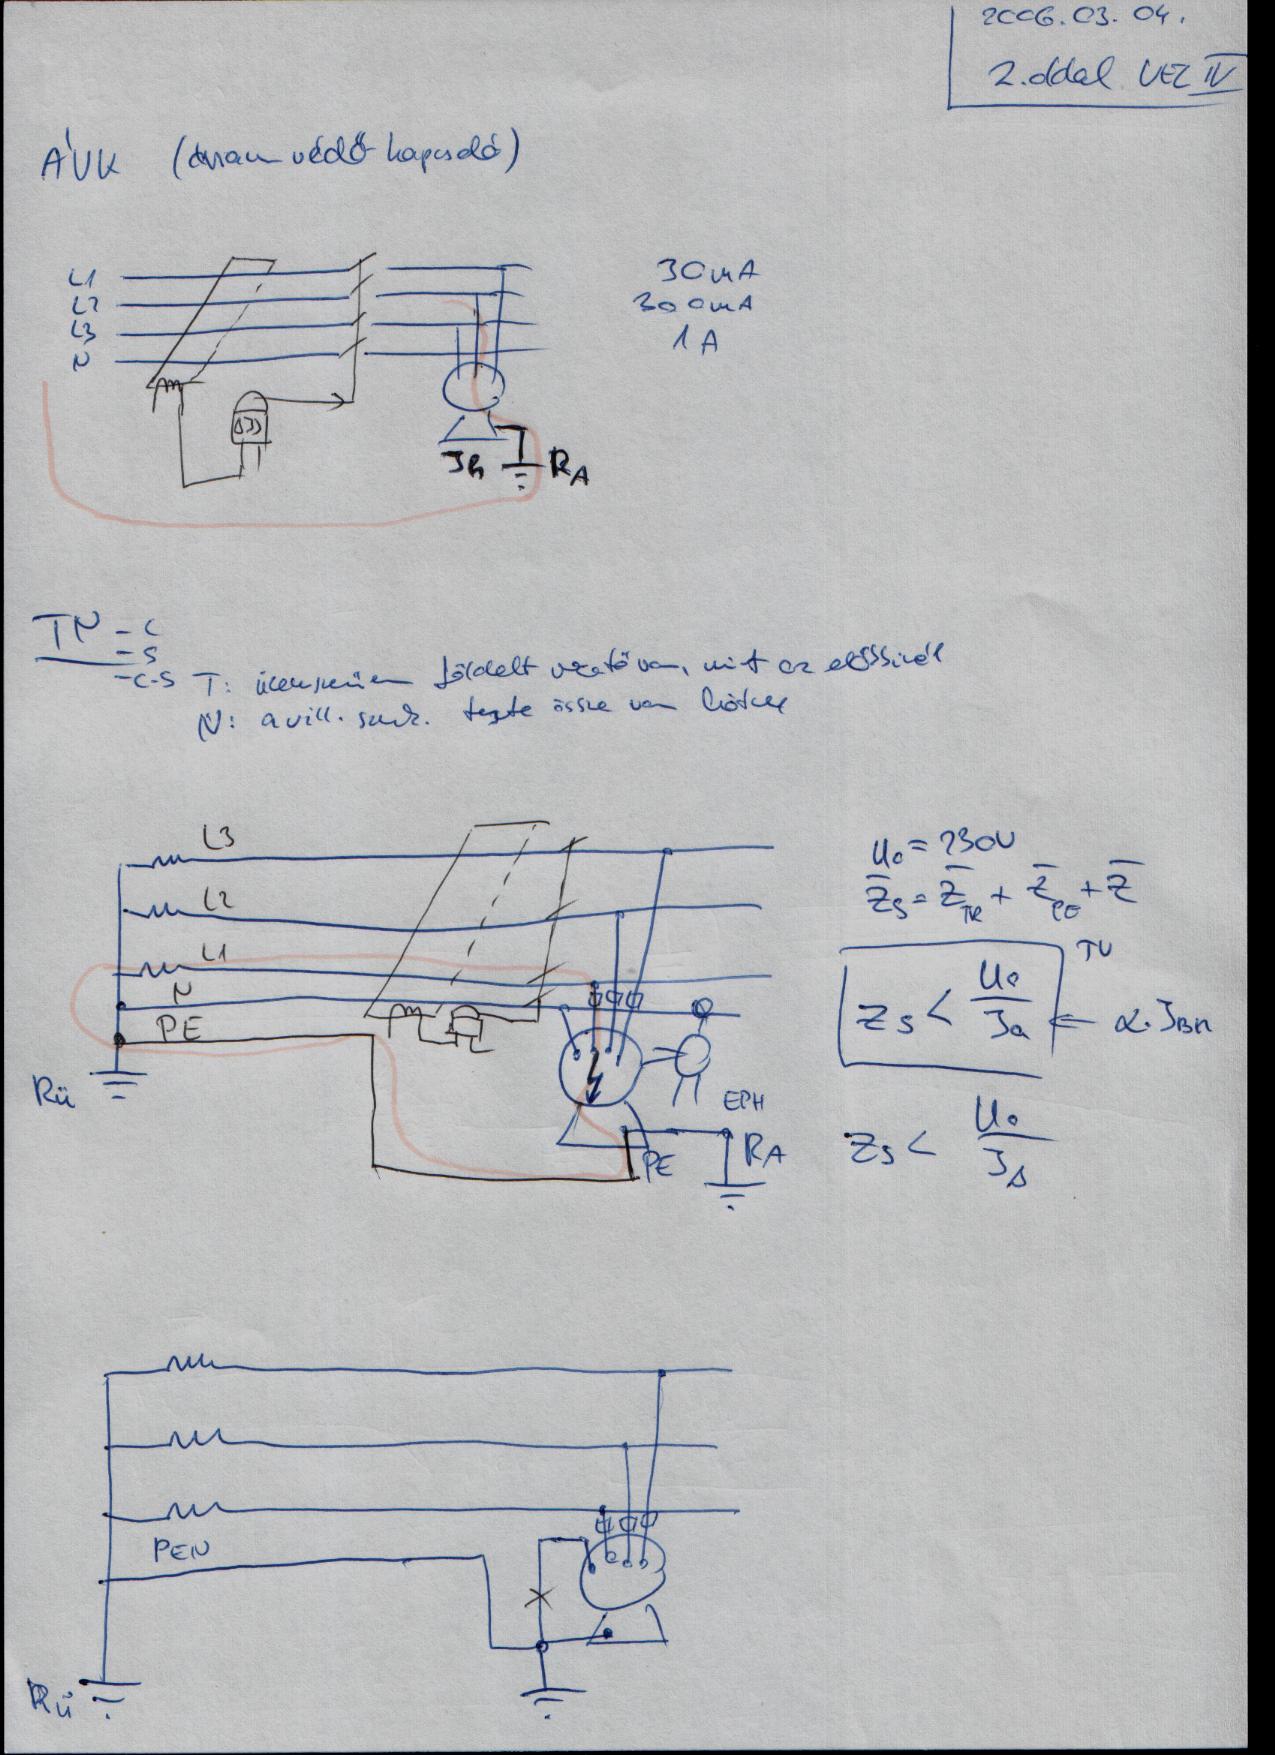 2006.03.04.
2.oldal VEZ IV
ÁVK (áram védő kapcsoló)
L1
L2
L3
N
30mA
300mA
1A
RA
TN - C
- S
-C-S
T: üzemszerűen földelt vezető van, mint az előzőnél
N: a vill. szerk. teste össze van kötve
L3
L2
L1
N
PE
Rü
EPH
PE
RA
U0 = 230V
Zs = ZTR + ZPE + Z
TN
Zs < U0 / Ia = α·IBn
Zs < U0 / IΔ
PEN
Rü